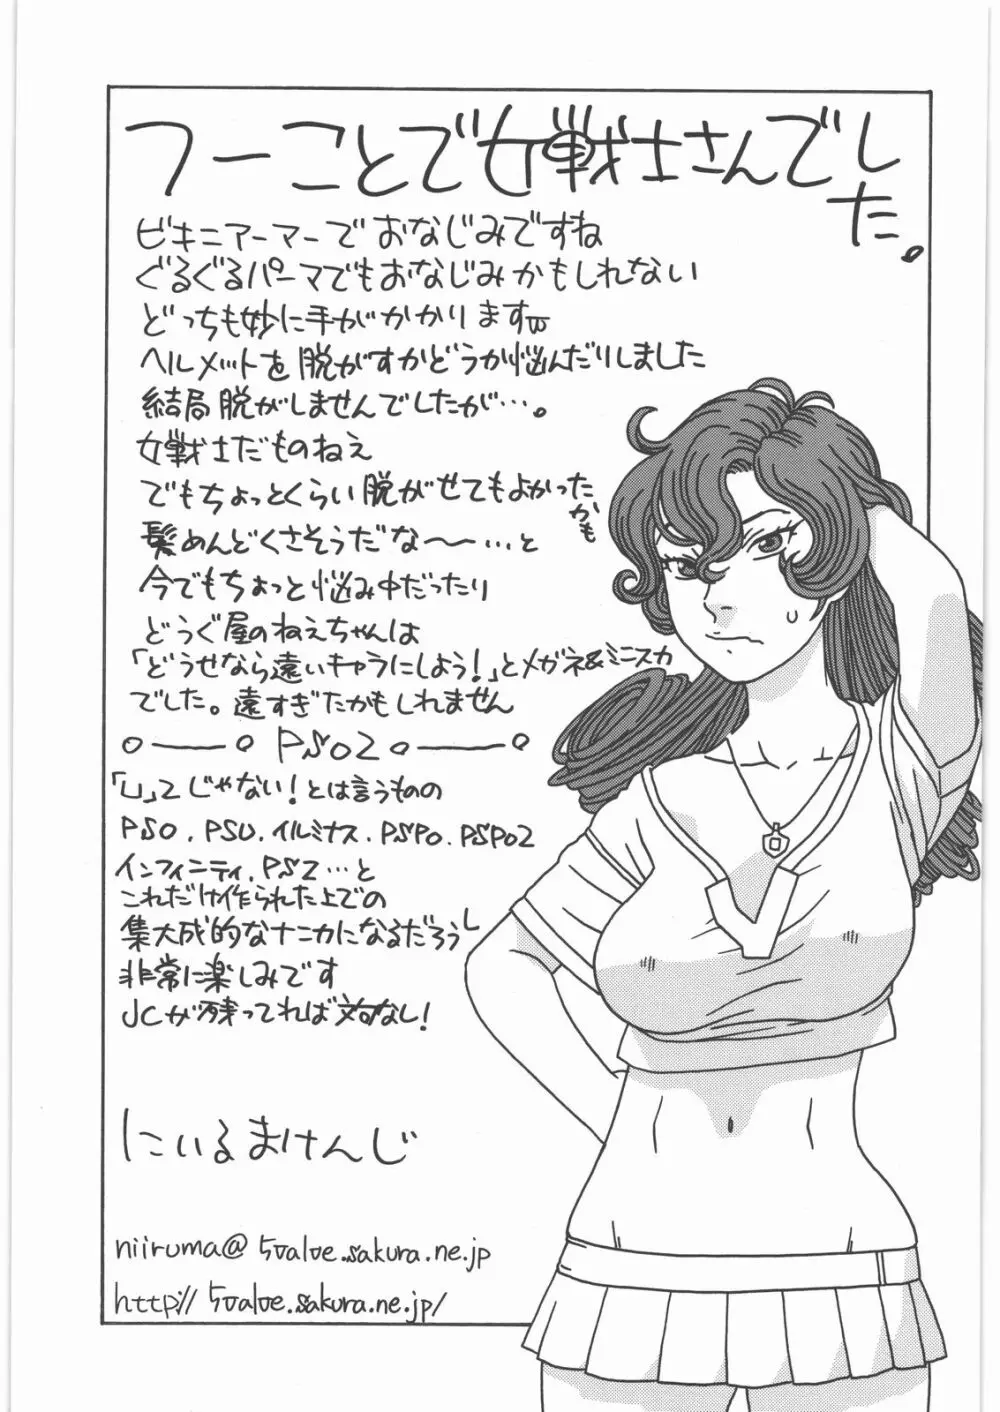 つーことで女戦士さんでした。
ビキニアーマーでおなじみですね
ぐるぐるパーマでもおなじみかもしれない
どっちも妙に手がかかりますw
ヘルメットを脱がすかどうか悩んだりしました
結局脱がしませんでしたが…。
女戦士だものねえ
でもちょっとくらい脱がせてもよかったかも
髪めんどくさそうだな〜…と
今でもちょっと悩み中だったり
どうぐ屋のねえちゃんは
「どうせなら遠いキャラにしよう!」とメガネ&ミニスカ
でした。遠すぎたかもしれません
PSO2
「U」2じゃない!とは言うものの
PSO、PSU、イルミナス、PSPo、PSPo2
インフィニティ、PSZ…と
これだけ作られた上での
集大成的なナニカになるだろうし
非常に楽しみです
JCが残ってれば文句なし!
にいるまけんじ
niiruma@5value.sakura.ne.jp
http://5value.sakura.ne.jp/